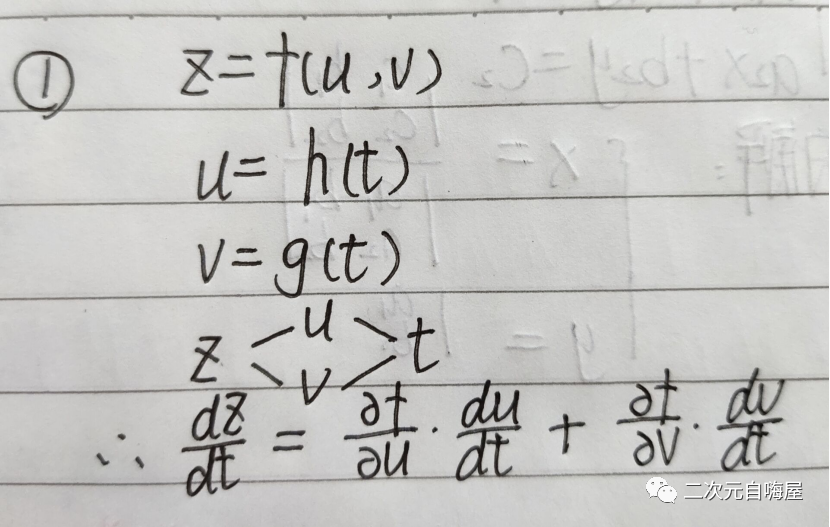 ① z=f(u,v)
u=h(t)
v=g(t)
z<u v>t
∴ dz/dt = ∂f/∂u · du/dt + ∂f/∂v · dv/dt
二次元自嗨屋